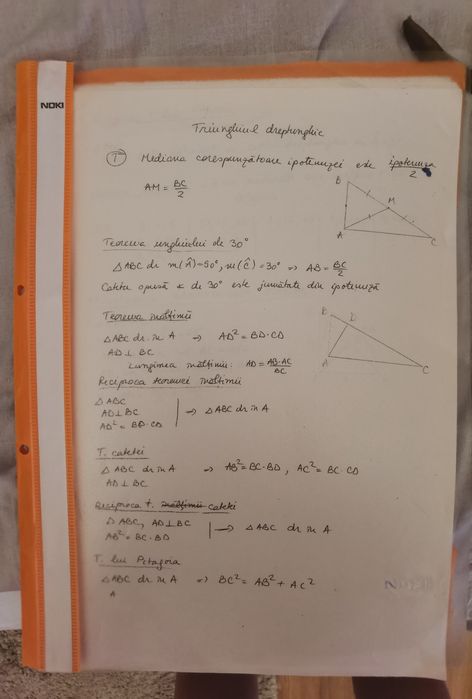 NOKI
Triunghiul dreptunghic
① Mediana corespunzătoare ipotenuzei este ipotenuza/2
AM = BC/2
B
M
A
C
Teorema unghiului de 30°
△ABC dr m(Â)=90°, m(Ĉ)=30° => AB = BC/2
Cateta opusă ∢ de 30° este jumătate din ipotenuză
Teorema înălțimii
△ABC dr. în A => AD² = BD·CD
AD ⊥ BC
Lungimea înălțimii: AD = AB·AC/BC
B
D
A
C
Reciproca teoremei înălțimii
△ABC
AD ⊥ BC
AD² = BD·CD
=> △ABC dr în A
T. catetei
△ABC dr în A => AB² = BC·BD, AC² = BC·CD
AD ⊥ BC
Reciproca t. înălțimii catetei
△ABC, AD ⊥ BC
AB² = BC·BD
=> △ABC dr în A
T. lui Pitagora
△ABC dr. în A => BC² = AB² + AC²
A